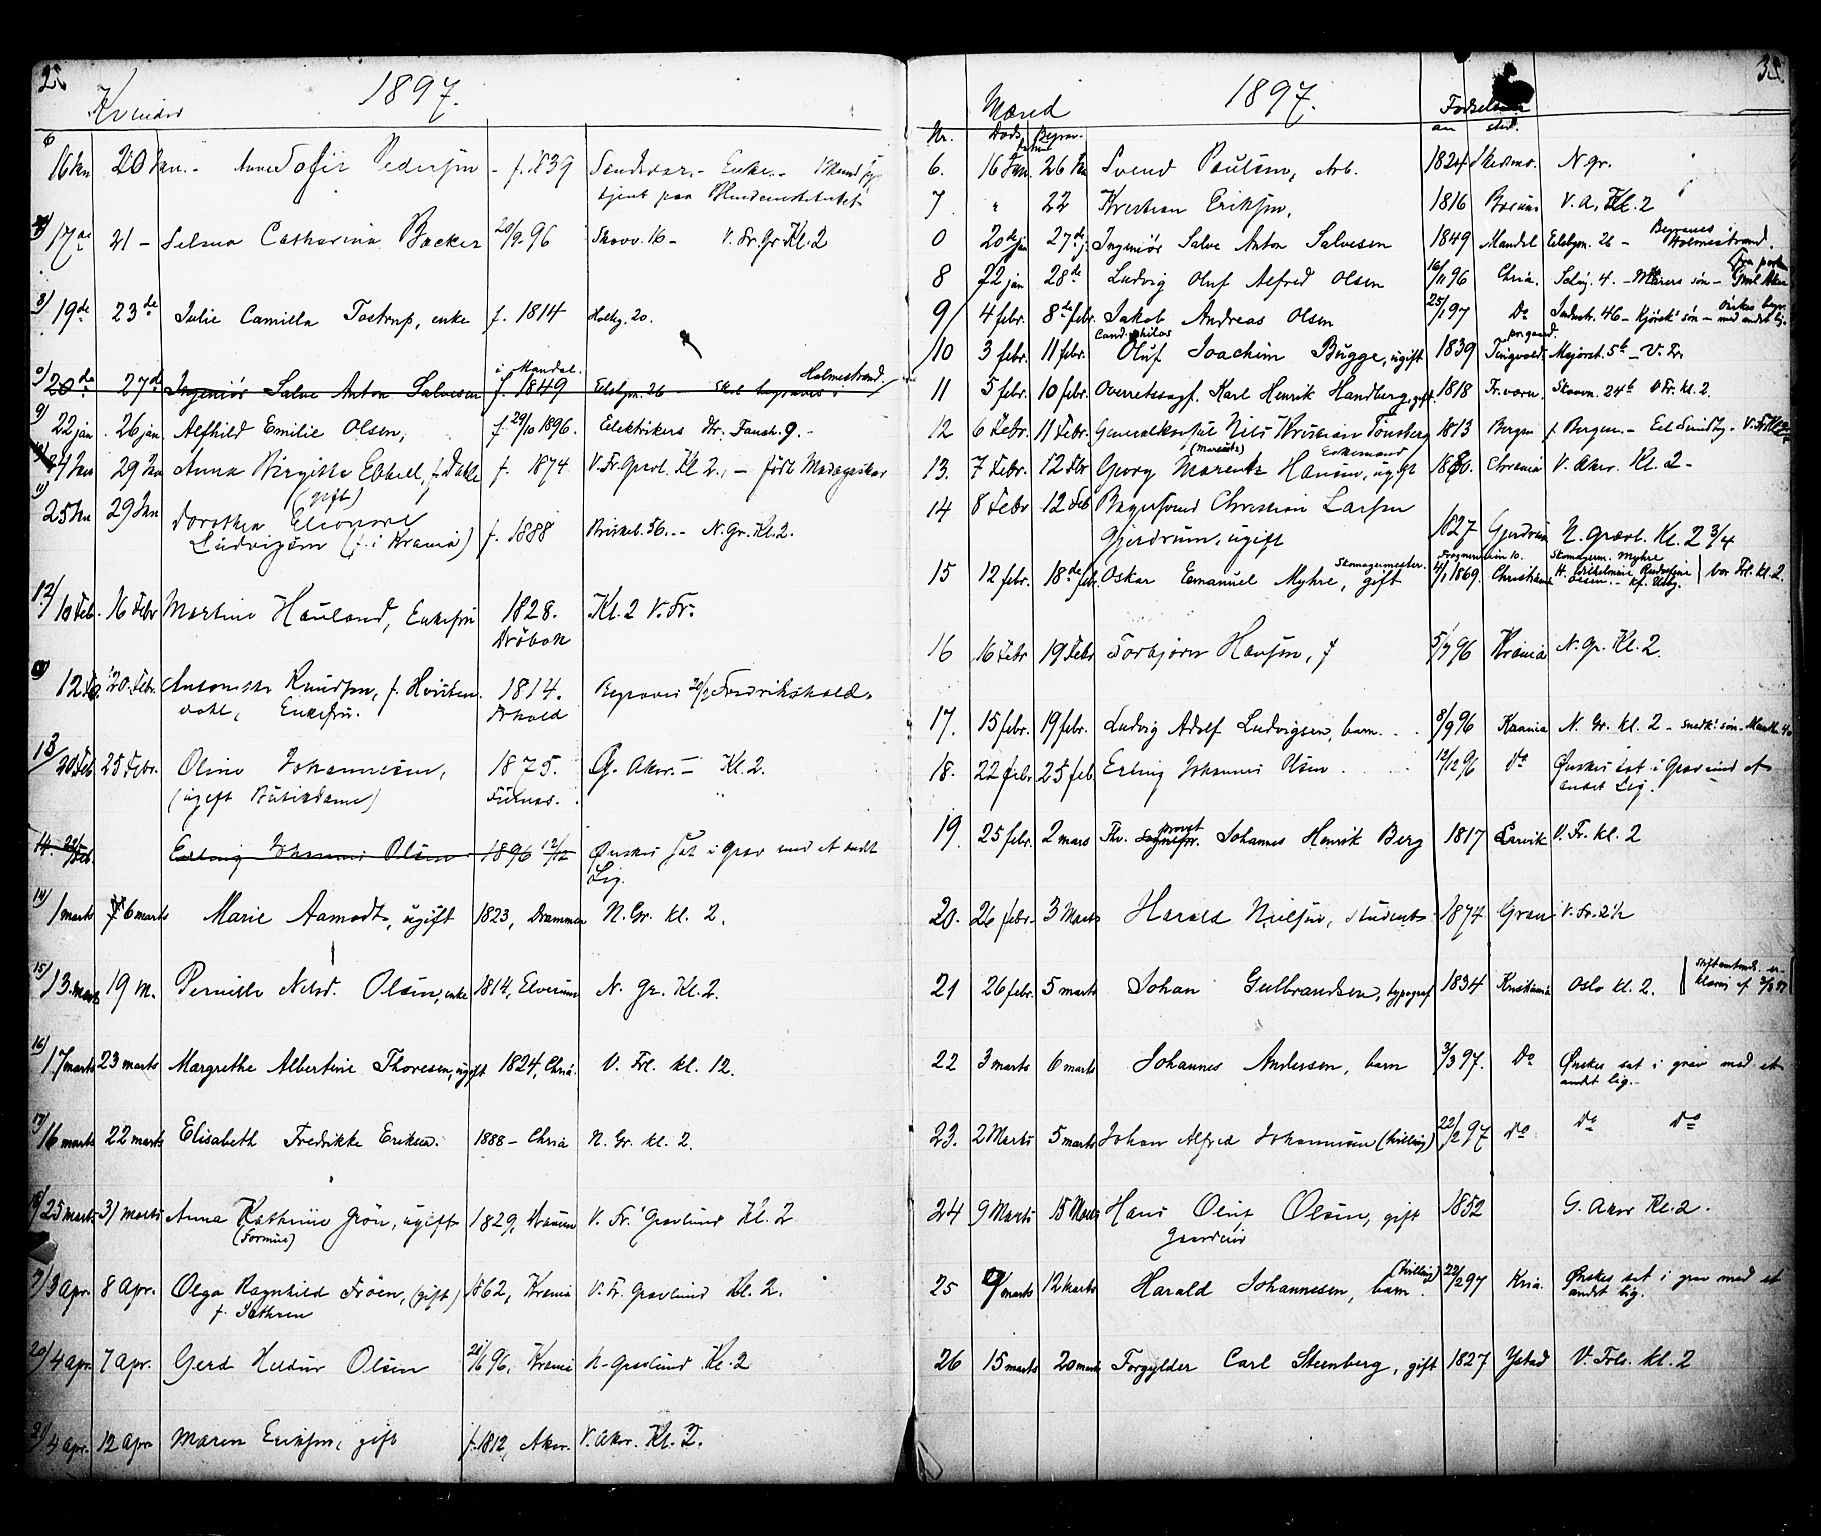 2.
Kvinder 1897.
6 16 Jan 20 Jan. - Anne Sofie Pedersen - f. 1839 - Enke -
tjent paa Blindeinstitutet
17de 21 - Selma Catharina Backer 20/9 96 Skovv. 16 - V. Fr. Gr Kl. 2
8) 19de 23de Julie Camilla Tostrup, enke f. 1814 Holbg. 20.
i Mandal. Holmestrand.
20de 27d Ingeniør Salve Anton Salvesen f. 1849 Eilebgn. 26 - Skal begraves i
9) 22 jan. 26 jan. Alfhild Emilie Olsen, f. 29/10 1896. Elektrikers Dr. 9. -
29 Jan Anna Birgitte f. Dahle f. 1874 V. Fr. Gravl. Kl 2., - født Madagaskar
(gift)
11) 25 Jan 29 Jan Dorothea Eleonore
Ludvigsen (f. i Krania) f. 1888 Briskeb. 56. - N. Gr. Kl. 2.
12/ 10 Feb. 16 Febr Martine Hauland, Enkefru 1828. Kl. 2 V. Fr.
Drøbak
12 Feb 20. Febr. Knudsen, f. Hvisten
dahl, Enkefru. 1814. Begraves 20/2 Fredrikshald.
Frhald
13/ 20 Feb 25 Febr. Oline Johannesen, 1875. G. Aker. - Kl. 2.
(ugift Butikdame) Furnes.
14. 22/Feb. Erling Johannes Olsen 1896 12/12 Ønskes sat i Grav med et andet
Lig.
14) 1 marts 6 marts Marie Aamodt, ugift 1823, Drammen N. Gr. kl. 2.
15) 13. marts 19 M. Pernille Nilsd. Olsen, enke 1814, Elverum N. Gr. Kl. 2.
16) 17 marts 23 marts Margrethe Albertine Thoresen, ugift 1824, Chria. V. Frl. kl. 12.
17) 16 marts 22 marts Elisabeth Fredrikke Eriksen. 1888 - Chria N. Gr. kl. 2.
18) 25 marts 31 marts Anna Kathrine Grøn, ugift 1829, V. Fr. Gravlund Kl. 2
3 Apr. 8 Apr. Olga Ragnhild Frøen, (gift) 1862, Krania V. Fr. Gravlund Kl. 2.
f. Sæthren
20/ 4 Apr. 7 Apr. Gerd Hildur Olsen 96, Krania N. Gravlund Kl. 2
21/ 4 Apr. 12 Apr. Maren Eriksen, gift f. 1812, Aker. V. Aker. Kl. 2.
3.
Mænd 1897.
Nr. Døds Begrav. Datum Fødsels aar sted.
6. 16 Jan 26 Jan Svend Poulsen, Arb. 1824 Skedsmo. N gr.
7. " 22 Kristian Eriksen, 1816 Bærum V. A. Kl. 2
0 20de jan 27de j. Ingeniør Salve Anton Salvesen 1849 Mandal Eilebgn. 26 - Begraves i Holmestrand.
8 22 jan 28de Ludvig Oluf Alfred Olsen 16/11 96 Chria. Schøg. 4. - Murers søn -
9/ 4 febr. 8de febr. Jakob Andreas Olsen 25/1 97 Do Industr. 46 - Kjørsk' søn - Ønskes begr. med andet lig.
Cand. philos pr.gaard
10 3 febr. 11 febr. Oluf Joachim Bugge, ugift 1839 Tingvold Majorst. 5b - V. Fr.
11 5 febr. 10 febr. Overretssagf. Karl Henrik Handberg, gift 1818 Fr.værn. Skovv. 24b V Fr. kl. 2.
12 6 Febr. 11 Febr. Generalkonsul Nils Kristian Tønsberg 1813 Bergen f. Bergen -
(Marenta) Enkemand
13. 7 Febr. 12 Fbr Georg Hansen, ugift Chrania V. Aker. Kl. 2 -
14 8 Febr 12 Feb Bagersvend Christian Larsen
Gjerdrum, ugift 1827 Gjerdrum N. Gravl. Kl. 2 3/4
Skomagermester.
15 12 febr. 18de feb. Oskar Emanuel Myhre, gift 4/1 1869. Christiania Skomagerm. Myhre
Vor Frl. kl. 2
16 16 Febr 19 Febr Torbjørn Hansen, 96 Krania N. Gr. Kl. 2.
17. 15 febr. 19 febr. Ludvig Adolf Ludvigsen, barn. 8/9 96 Krania N. Gr. kl. 2 - Snedk' søn
18. 22 febr. 25 feb Erling Johannes Olsen 12/12 96 do Ønskes sat i Grav med et
andet Lig.
19. 25 febr. 2 mars Fhv. Sognepr. provst Johannes Henrik Berg 1817 Larvik V. Fr. kl. 2
20. 26 febr. 3 Marts Harald Nielsen, student 1874 Gran V. Fr. 2 1/2
21 26 febr. 5 marts Johan Gulbrandsen, typograf 1834 Kristiania Oslo kl. 2.
22 3 marts 6 marts Johannes Andersen, barn 3/3 97. Do Ønskes sat i grav med et
andet lig.
23. 2 Marts 5 marts Johan Alfred Johannesen (tvilling) 22/2 97 do do do
24 9 Marts 15 Marts Hans Oluf Olsen, gift 1852 G. Aker Kl. 2.
25 9/marts 12 Marts Harald Johannesen, barn (tvilling) 22/2 97 Kria. Ønskes sat i grav med et
andet lig.
26 15 marts 20 marts Forgylder Carl Steenberg, gift 1827 Ystad V. Frls. kl. 2